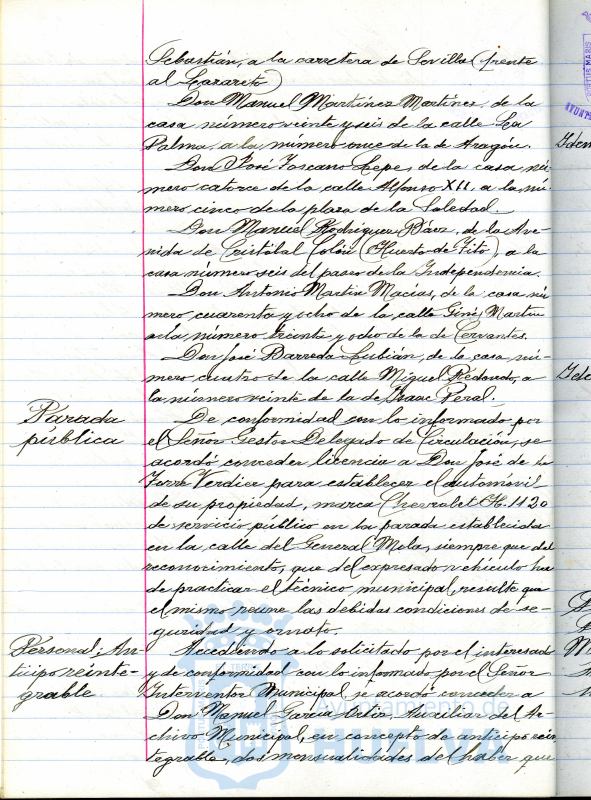 Sebastián, a la carretera de Sevilla (frente
al Lazareto)
Don Manuel Martínez Martínez, de la
casa número veinte y seis de la calle La
Palma, a la número once de la de Aragón.
Don José Toscano Lepe, de la casa nú-
mero catorce de la calle Alfonso XII, a la nú-
mero cinco de la plaza de la Soledad.
Don Manuel Rodríguez Báez, de la Ave-
nida de Cristóbal Colón (Huerto de Tito), a la
casa número seis del paseo de la Independencia.
Don Antonio Martín Macías, de la casa nú
mero cuarenta y ocho de la calle Ginés Martín
a la número treinta y ocho de la de Cervantes.
Don José Barreda Lubián, de la casa nú-
mero cuatro de la calle Miguel Redondo, a
la número veinte de la de Isaac Peral.
Parada
pública
De conformidad con lo informado por
el Señor Gestor Delegado de Circulación, se
acordó conceder licencia a Don José de la
Torre Verdier para establecer el automóvil
de su propiedad, marca Chevrolet H. 1120
de servicio público en la parada establecida
en la calle del General Mola, siempre que del
reconocimiento, que del expresado vehículo ha
de practicar el técnico municipal, resulte que
el mismo reune las debidas condiciones de se-
guridad y ornato.
Personal; An-
ticipo reinte-
grable
Accediendo a lo solicitado por el interesado
y de conformidad con lo informado por el Señor
Interventor Municipal se acordó conceder a
Don Manuel García Auxiliar del Ar-
chivo Municipal, en concepto de anticipo rein
tegrable, dos mensualidades del haber que
Ayuntamiento de
HUELVA
Idem
Ide